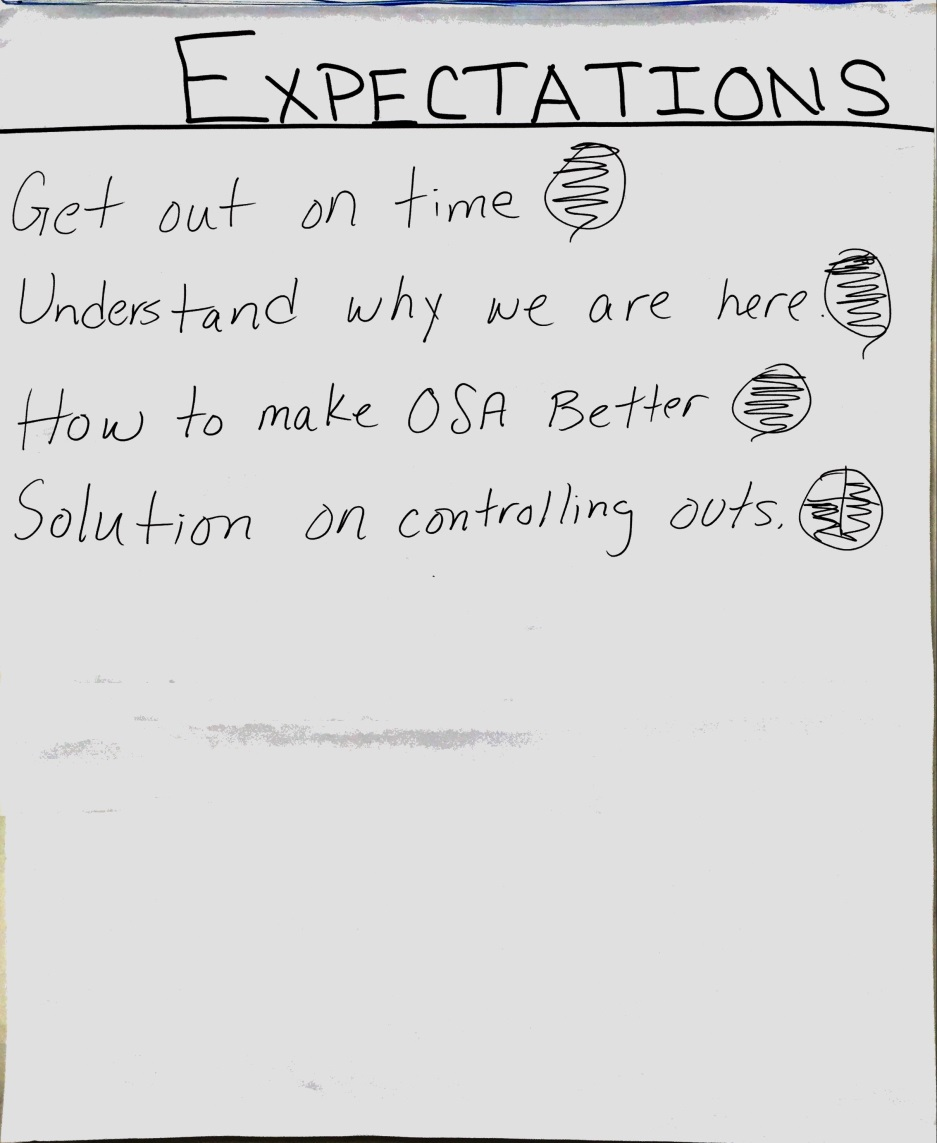 EXPECTATIONS
Get out on time
Understand why we are here.
How to make OSA Better
Solution on controlling outs.